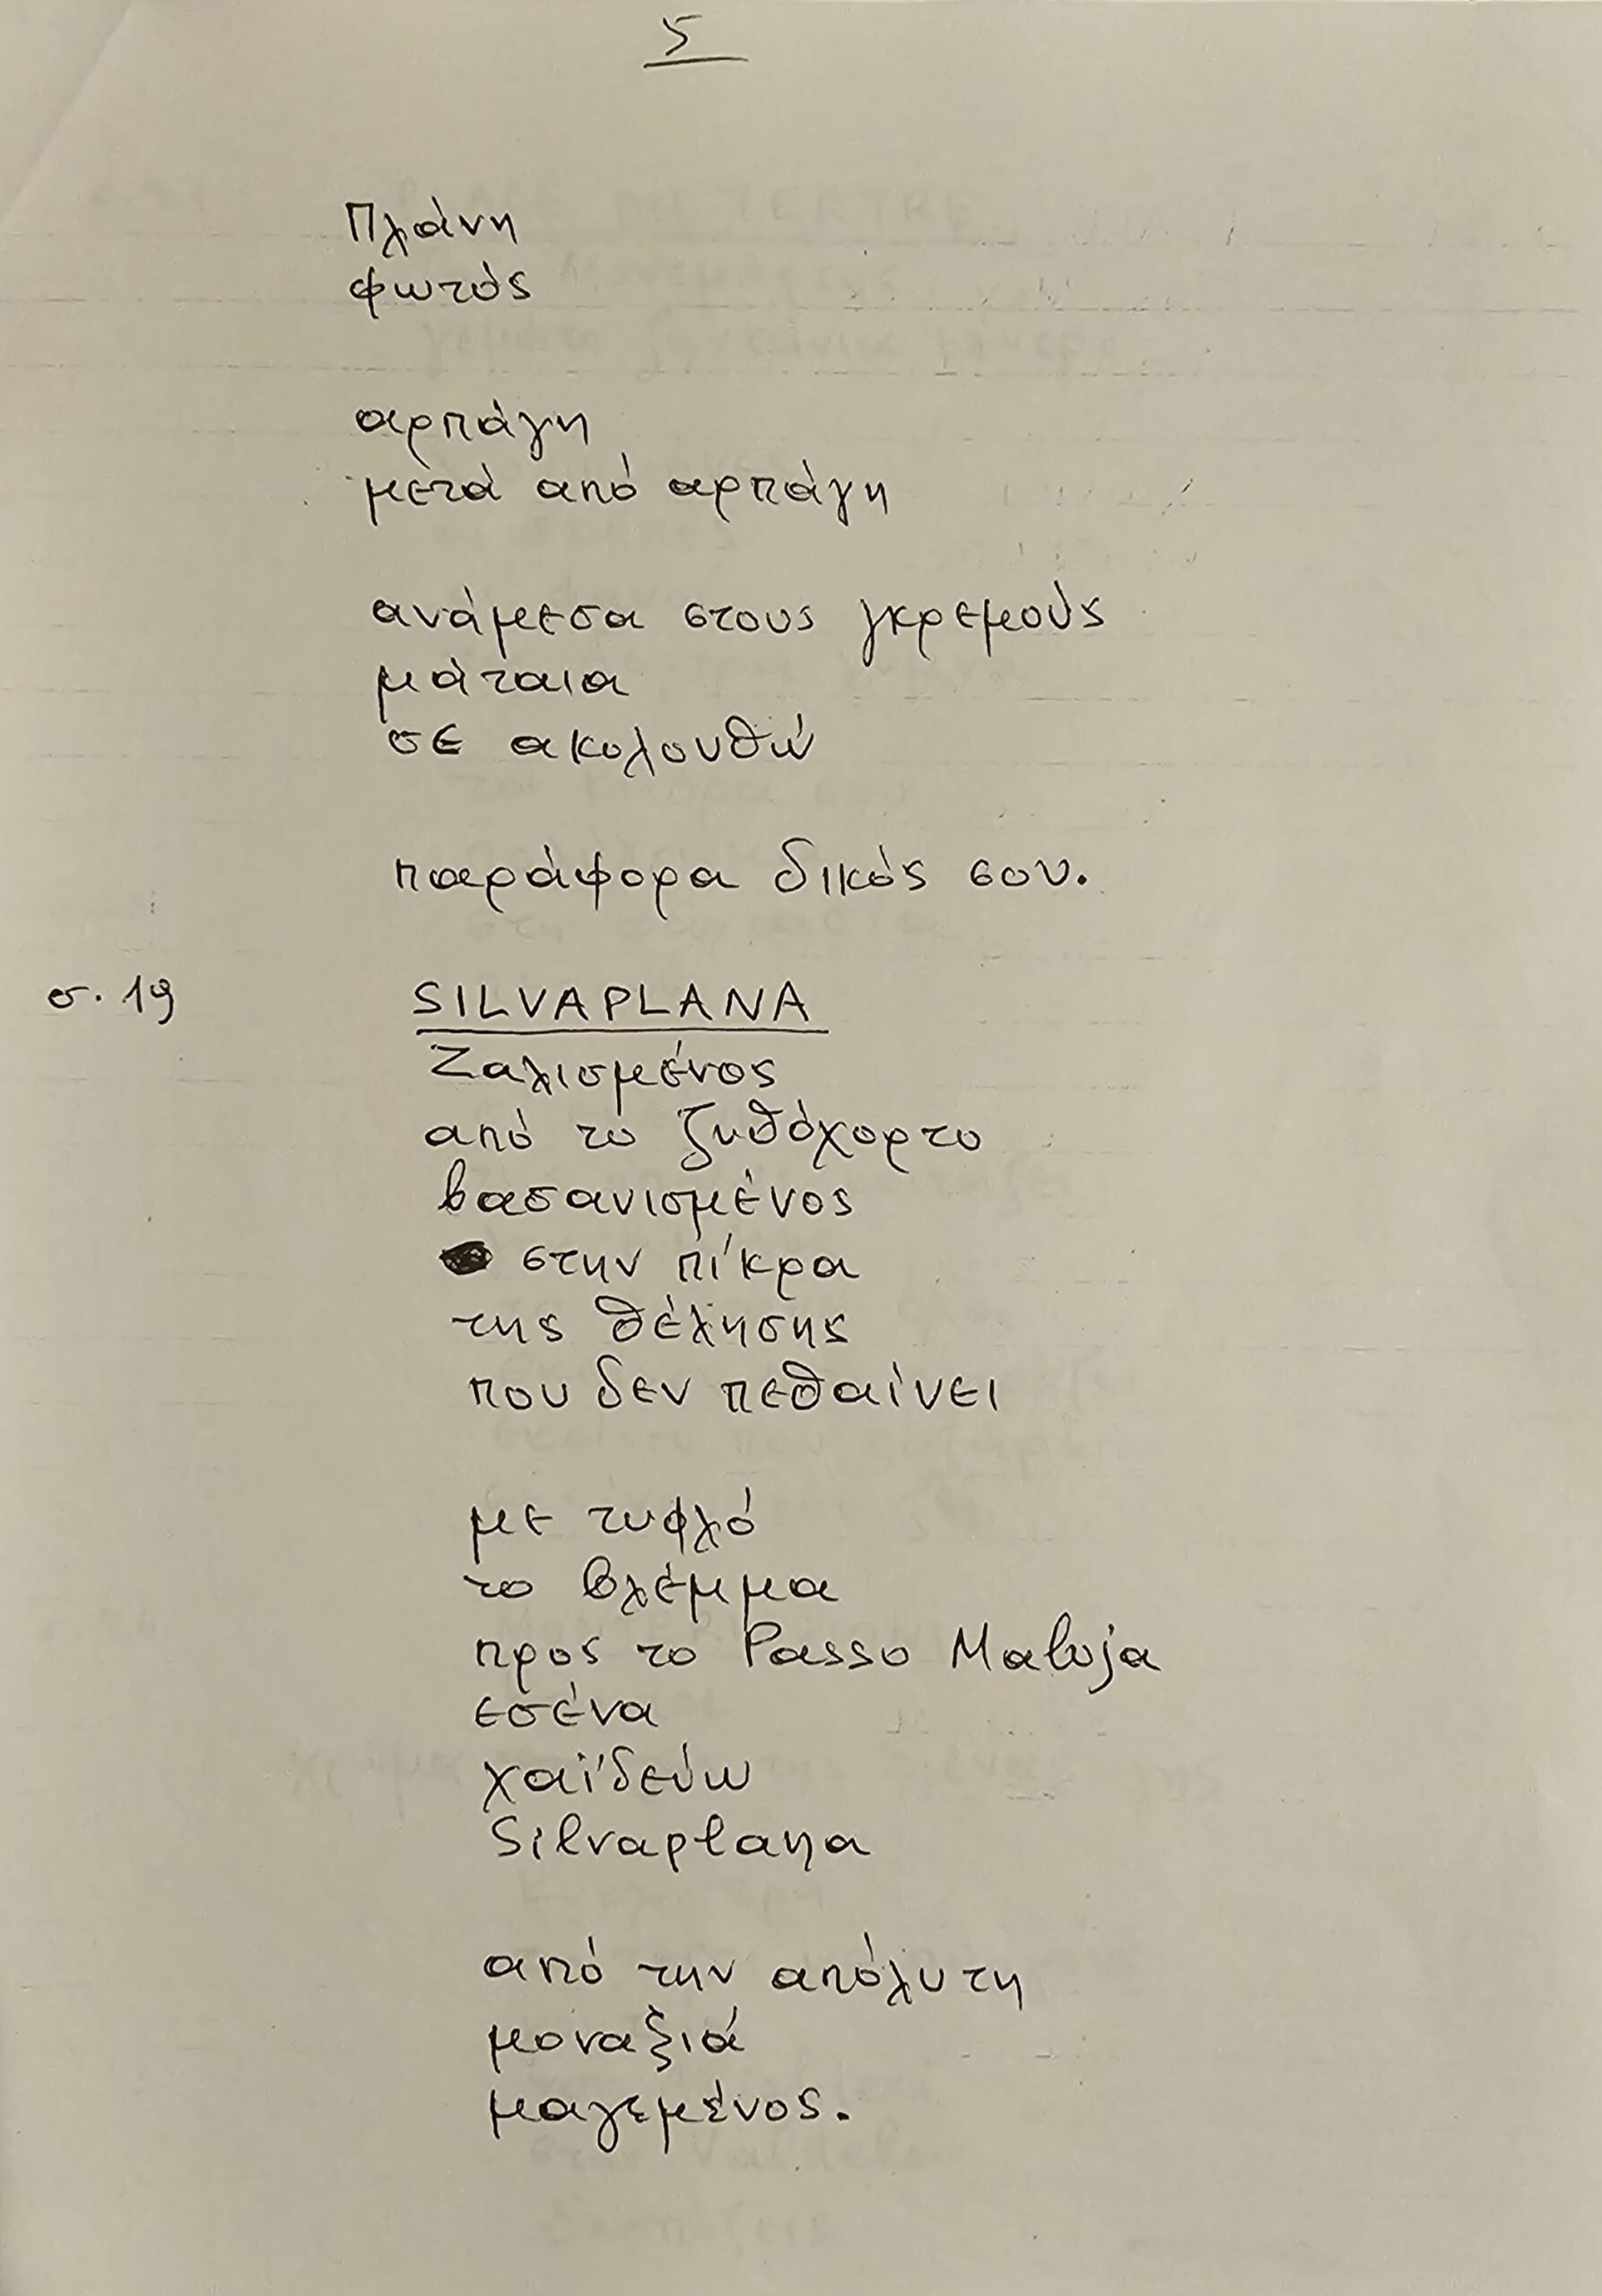 5
Πλάνη
φωτός
αρπάγη
μετά από αρπάγη
ανάμεσα στους γκρεμούς
μάταια
σε ακολουθώ
παράφορα δικός σου.
σ. 19 SILVAPLANA
Ζαλισμένος
από το ζυθόχορτο
βασανισμένος
στην πίκρα
της θέλησης
που δεν πεθαίνει
με τυφλό
το βλέμμα
προς το Passo Maloja
εσένα
χαϊδεύω
Silvaplana
από την απόλυτη
μοναξιά
μαγεμένος.